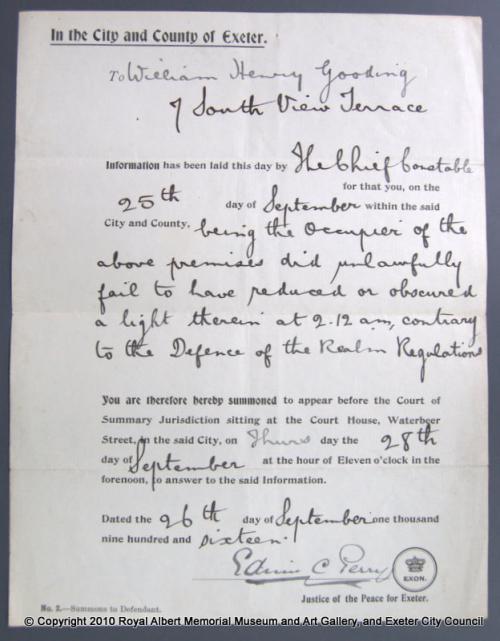 In the City and County of Exeter.
To William Henry Gooding
7 South View Terrace
Information has been laid this day by The Chief Constable
for that you, on the
25th day of September within the said
City and County, being the Occupier of the
above premises did unlawfully
fail to have reduced or obscured
a light therein at 2.12 am, contrary
to the Defence of the Realm Regulations
You are therefore hereby summoned to appear before the Court of
Summary Jurisdiction sitting at the Court House, Waterbeer
Street, in the said City, on Thurs day the 28th
day of September at the hour of Eleven o'clock in the
forenoon, to answer to the said Information.
Dated the 26th day of September one thousand
nine hundred and sixteen.
Edwin C Perry
EXON.
Justice of the Peace for Exeter.
No. 2.—Summons to Defendant.
© Copyright 2010 Royal Albert Memorial Museum and Art Gallery, and Exeter City Council